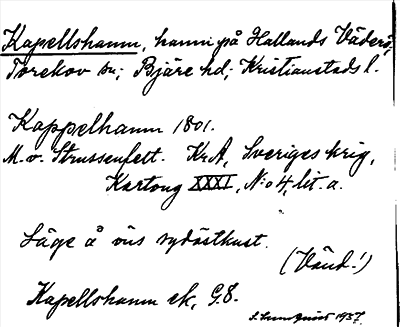 Kapellshamn, hamn på Hallands Väderö,
Torekov sn; Bjäre hd; Kristianstads l.
Kappelhamn 1801.
M. v. Strussenfelt. KrA, Sveriges krig,
Kartong XXXI, N:o 4, lit. a.
Läge å öns sydöstkust.
(Vänd!)
Kapellshamn ek, G.8.
1937.